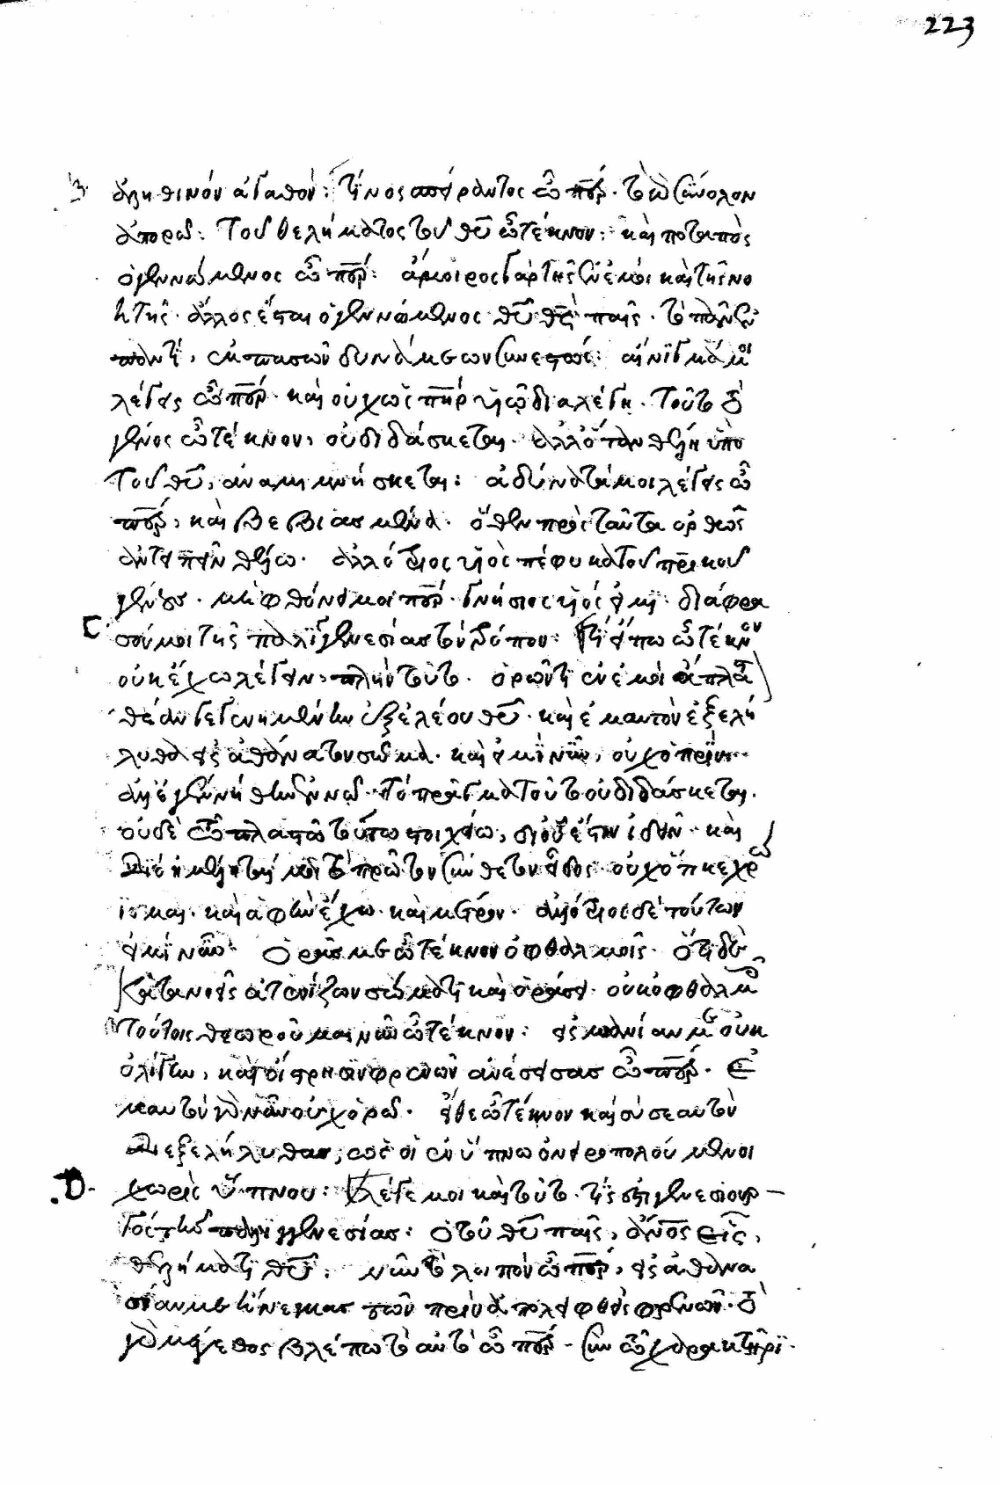 223
ἀληθινὸν ἀγαθόν: τίνος σπείραντος ὦ περ· τὸ σύνολον
ἀπορῶ: Τοῦ θελήματος τοῦ θῦ ὦ τέκνον: καὶ ποταπὸς
ὁ γεννώμενος ὦ περ: ἄμοιρος γὰρ τῆς ἐν ἐμοὶ καὶ τῆς νο
ητῆς· ἄλλος ἔσται ὁ γεννώμενος θῦ θς παῖς· τὸ πᾶν ἐν
παντί, ἐκ πασῶν δυνάμεων συνεστώς: αἴνιγμά μοι
λέγεις ὦ περ· καὶ οὐχ ὡς πηρ υἱῷ διαλέγη· Τοῦτο τὸ
γένος ὦ τέκνον, οὐ διδάσκεται· ἀλλ' ὅταν θέλη ὑπὸ
τοῦ θῦ, ἀναμιμνήσκεται: ἀδύνατά μοι λέγεις ὦ
περ, καὶ βεβιασμένα· ὅθεν πρὸς ταῦτα ὀρθῶς
ἀντειπεῖν θέλω· ἀλλότριος υἱὸς πέφυκα τοῦ πρικοῦ
γένους· μὴ φθόνει μοι περ· γνήσιος υἱός εἰμι· διάφρα
C σόν μοι τῆς παλιγγενεσίας τὸν τρόπον: Τί εἴπω ὦ τέκνον
οὐκ ἔχω λέγειν, πλὴν τοῦτο· ὁρῶν τι ἐν ἐμοὶ ἄπλα
θέαν γεγενημένην ἐξ ἐλέου θῦ· καὶ ἐμαυτὸν ἐξελή
λυθα εἰς ἀθάνατον σῶμα· καὶ εἰμὶ νῦν, οὐχ ὁ πρίν·
ἀλλ' ἐγεννήθην ἐν νῷ· τὸ πρᾶγμα τοῦτο οὐ διδάσκεται·
οὐδὲ τῷ πλαστῷ τούτω στοιχείω, δι' οὗ ἔστιν ἰδεῖν· καὶ
διὸ ἠμέληταί μοι τὸ πρῶτον σύνθετον εἶδος· οὐχ ὅτι κεχρω
σμαι· καὶ ἀφὴν ἔχω· καὶ μέτρον· ἀλλότριος δὲ τούτων
εἰμὶ νῦν· Ὁρᾷς με ὦ τέκνον ὀφθαλμοῖς· ὅτι δὲ
κατανοεῖς ἀτενίζων σώματι καὶ ὁράσει· οὐκ ὀφθαλμοῖς
τούτοις θεωροῦμαι νῦν ὦ τέκνον: εἰς μανίαν με οὐκ
ὀλίγην, καὶ οἴστρησιν φρενῶν ἀνέσεισας ὦ περ· ἐ
μαυτὸν γὰρ νῦν οὐχ ὁρῶ· εἴθε ὦ τέκνον καὶ σὺ σεαυτὸν
διεξελήλυθας, ὡς οἱ ἐν ὕπνω ὀνειροπολούμενοι
D χωρὶς ὕπνου: λέγε μοι καὶ τοῦτο· τίς ἐστι γενεσιουρ
γὸς τῆς παλιγγενεσίας: ὁ τοῦ θῦ παῖς, ἄνος εἷς,
θελήματι θῦ: νῦν τὸ λοιπὸν ὦ περ, εἰς ἀφα
σίαν με ἤνεγκας τῶν πρὶν ἀπολειφθεὶς φρενῶν· τὸ
γὰρ μέγεθος βλέπω τὸ αὐτὸ ὦ περ σὺν τῷ χαρακτῆρι·